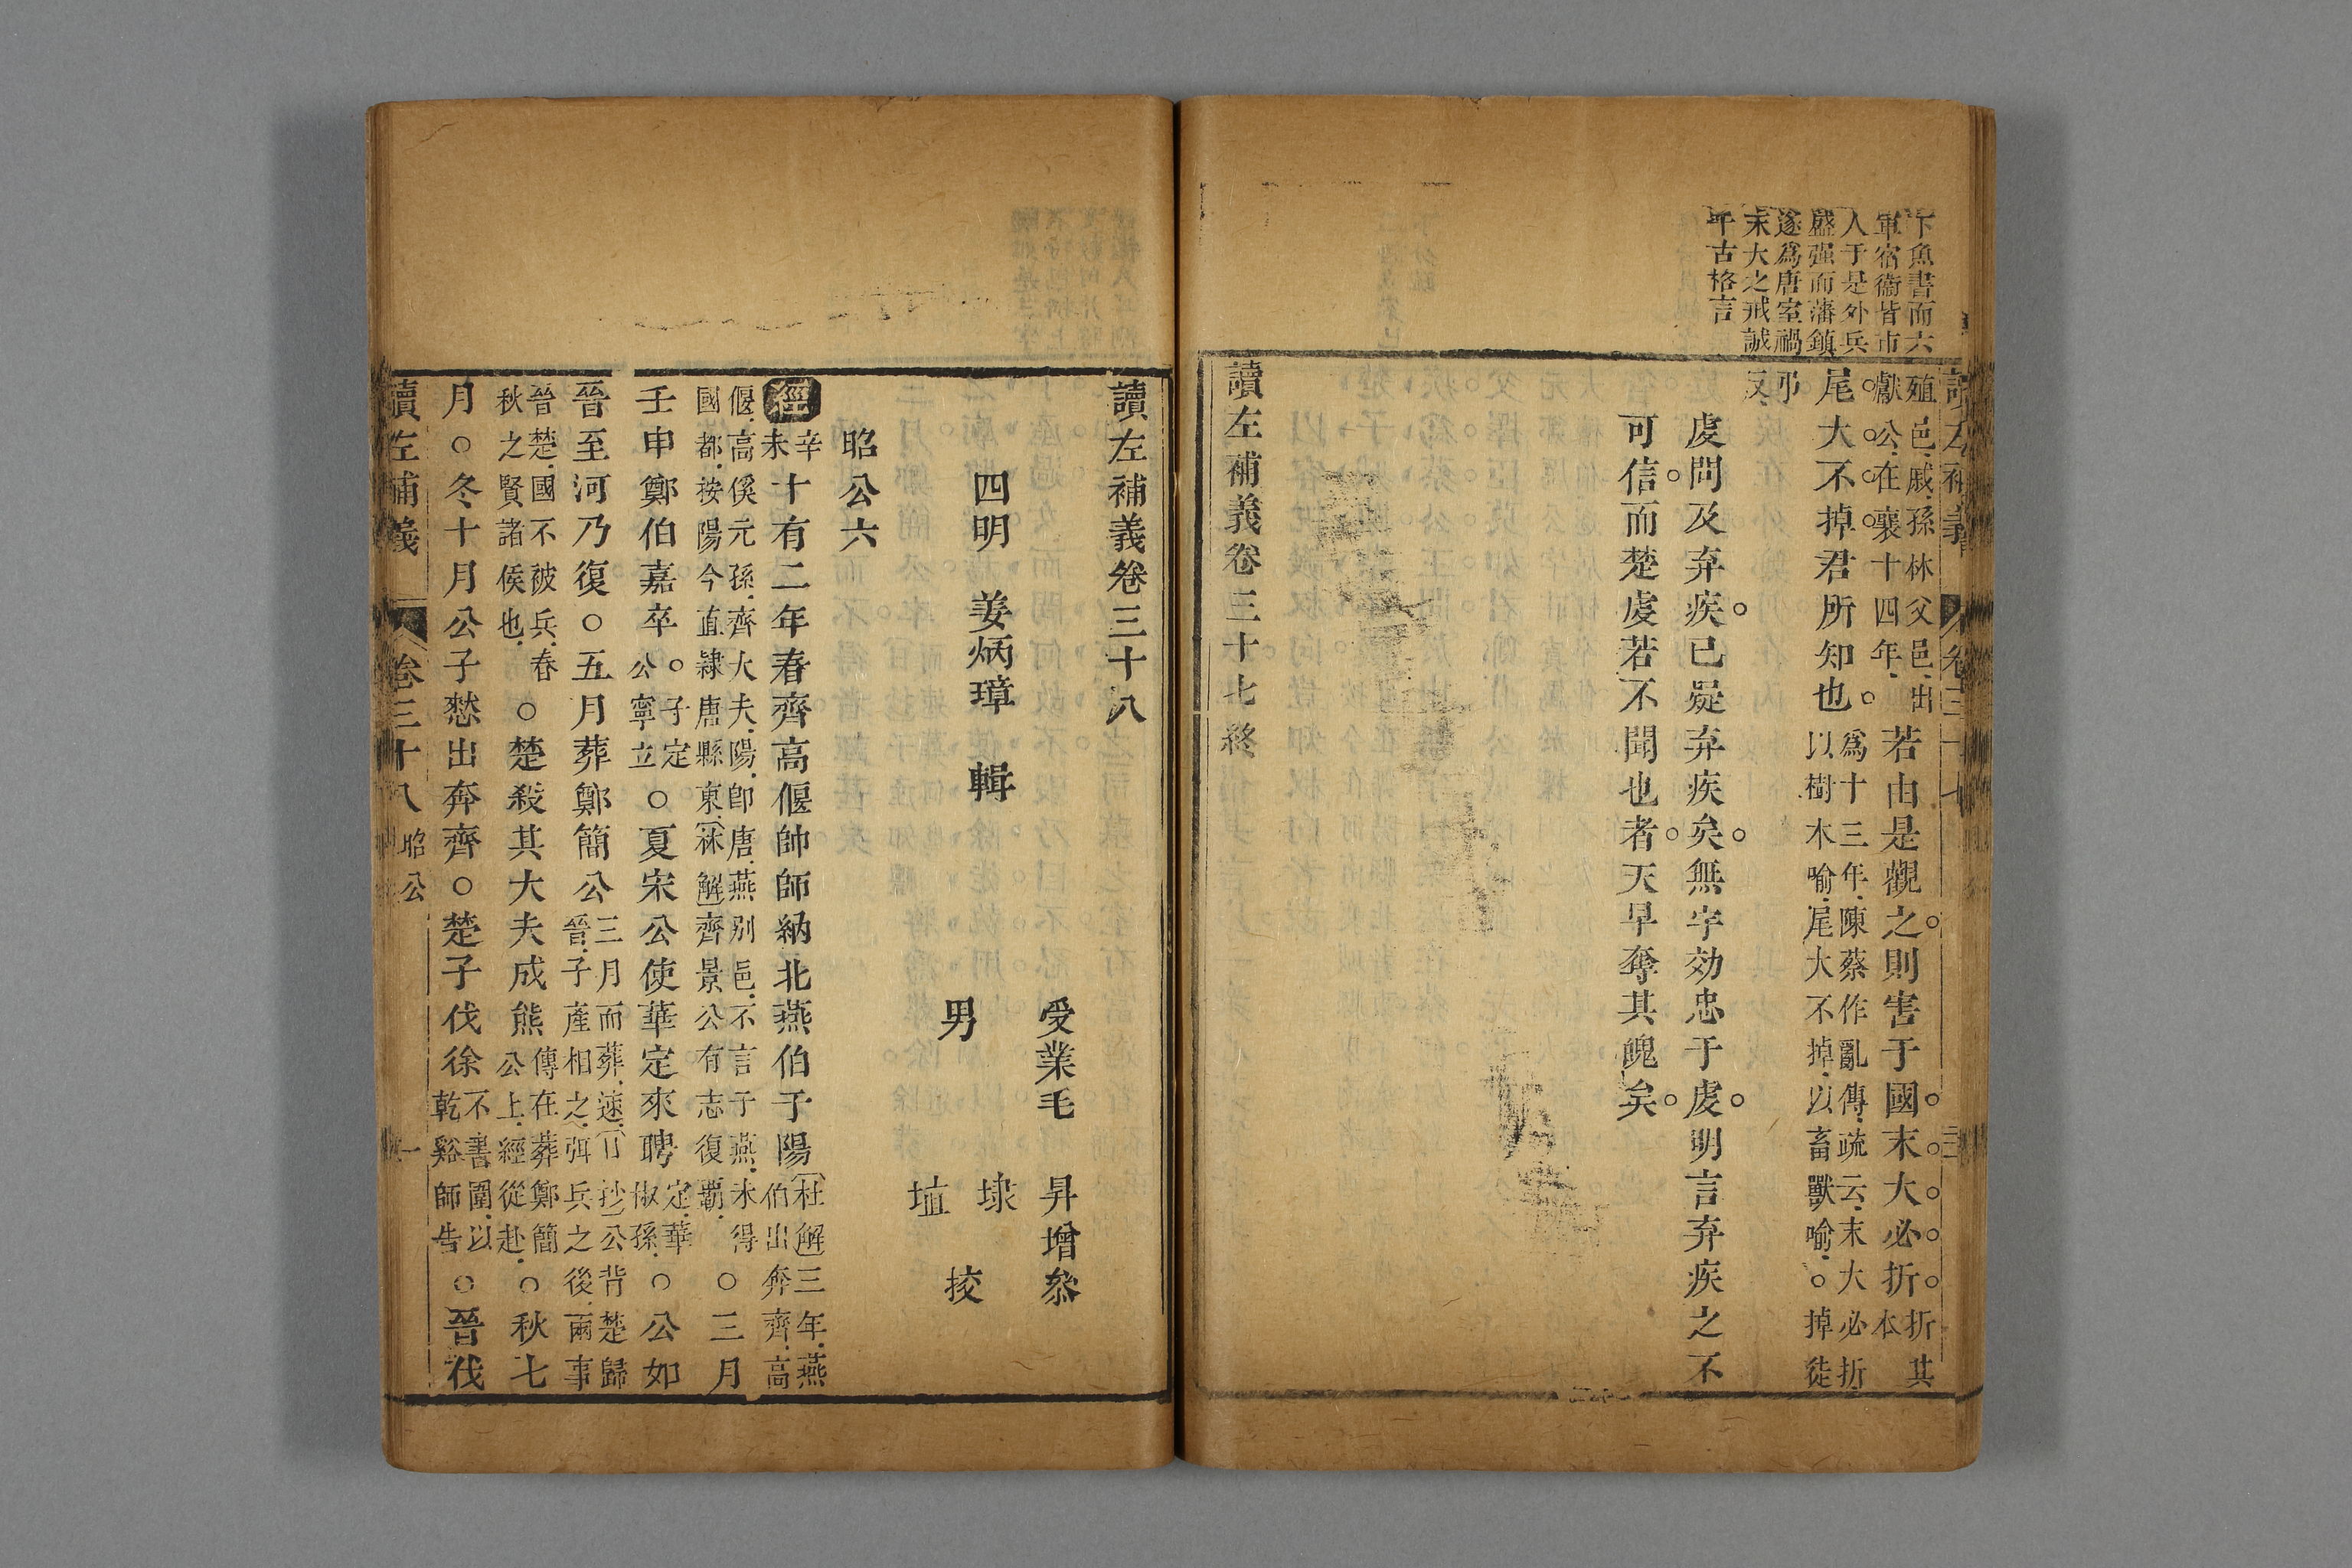 下魚書而六
軍宿衞皆市
人于是外兵
盛强而藩鎮
遂爲唐室禍
末大之戒誠
千古格言
殖邑戚孫林父邑出
獻公在襄十四年
若由是觀之則害于國末大必折
折其
本
尾大不掉君所知也
爲十三年陳蔡作亂傳疏云末大必折
以樹木喻尾大不掉以畜獸喻○掉徒
弔
反
虔問及弃疾已疑弃疾矣無宇効忠于虔明言弃疾之不
可信而楚虔若不聞也者天早奪其魄矣
讀左補義卷三十七終
讀左補義卷三十八
四明 姜炳璋 輯
受業毛 昇增叅
男 埭
埴 挍
昭公六
經
辛
未
十有二年春齊高偃帥師納北燕伯于陽
杜解三年燕
伯出奔齊高
偃高傒元孫齊大夫陽卽唐燕别邑不言于燕未得
國都按陽今直隷唐縣東 秝解齊景公有志復霸
○三月
壬申鄭伯嘉卒
○子定
公寧立
○夏宋公使華定來聘
定華
椒孫
○公如
晉至河乃復○五月葬鄭簡公
三月而葬速 日抄公背楚歸
晉子產相之 弭兵之後兩事
晉楚國不被兵春
秋之賢諸侯也
○楚殺其大夫成熊
傳在葬鄭簡
公上經從赴
○秋七
月○冬十月公子憖出奔齊○楚子伐徐
不書圍以
乾谿師告
○晉伐
讀左補義 卷三十八
昭公
一